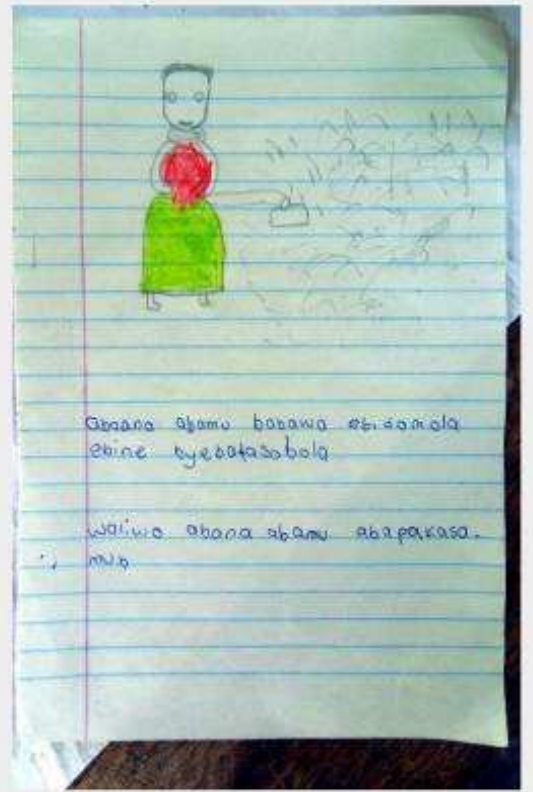 abaana abamu babawa ebidomola
ebine byebatasobola
waliwo abana abamu abapakasa.
mub